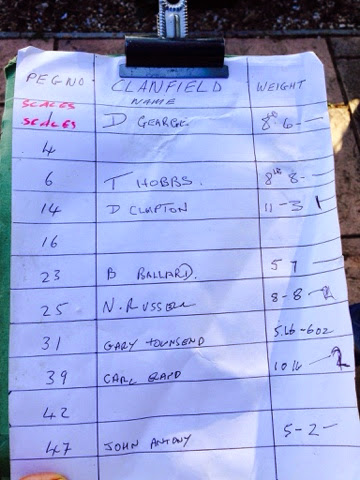 PEG NO CLANFIELD NAME WEIGHT
SCALES
SCALES 1 D GEARGE 8lb 6-
4
6 T HOBBS. 8lb 8-
14 D CLAPTON 11-3 1
16
23 B BALLARD. 5 7
25 N. RUSSELL 8-8 2
31 GARY TOWNSEND 5lb-6oz
39 CARL 10lb 2
42
47 JOHN ANTONY 5-2-